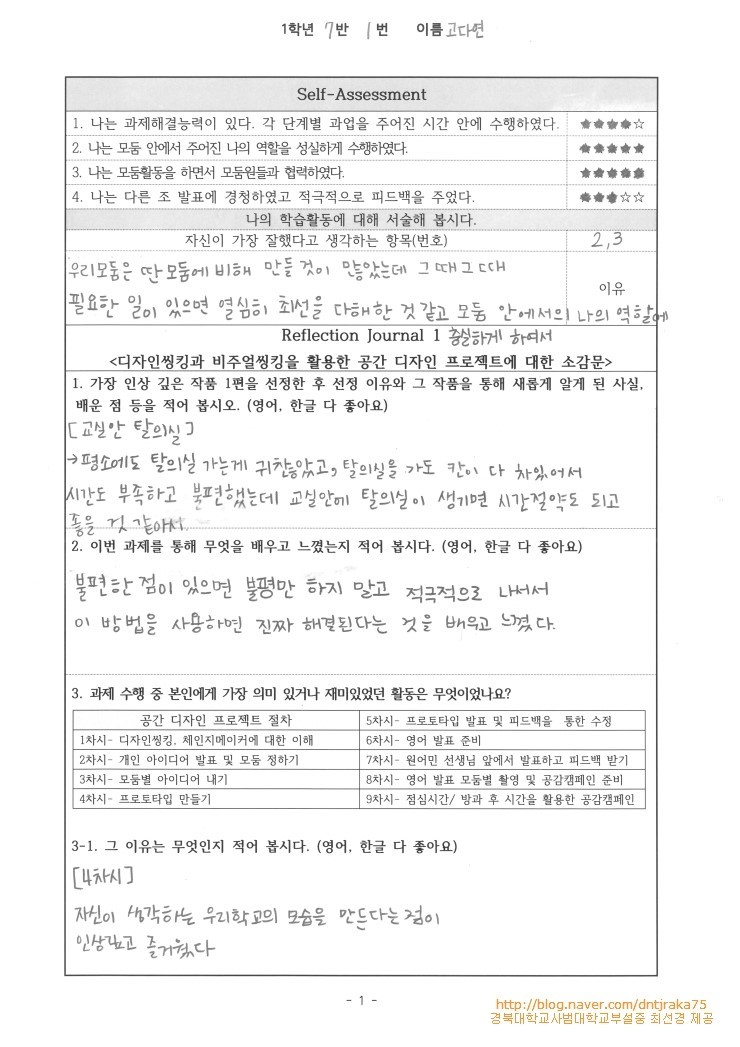 1학년 7반 1번 이름 고다연
Self-Assessment
1. 나는 과제해결능력이 있다. 각 단계별 과업을 주어진 시간 안에 수행하였다. ★★★★☆
2. 나는 모둠 안에서 주어진 나의 역할을 성실하게 수행하였다. ★★★★★
3. 나는 모둠활동을 하면서 모둠원들과 협력하였다. ★★★★★
4. 나는 다른 조 발표에 경청하였고 적극적으로 피드백을 주었다. ★★★☆☆
나의 학습활동에 대해 서술해 봅시다.
자신이 가장 잘했다고 생각하는 항목(번호) 2,3
우리모둠은 딴모둠에 비해 만들 것이 많았는데 그때그때
필요한 일이 있으면 열심히 최선을 다해한 것 같고 모둠 안에서의 나의 역할에
이유
충실하게 하여서
Reflection Journal 1
<디자인씽킹과 비주얼씽킹을 활용한 공간 디자인 프로젝트에 대한 소감문>
1. 가장 인상 깊은 작품 1편을 선정한 후 선정 이유와 그 작품을 통해 새롭게 알게 된 사실,
배운 점 등을 적어 봅시오. (영어, 한글 다 좋아요)
[교실안 탈의실]
→평소에도 탈의실 가는게 귀찮았고, 탈의실을 가도 칸이 다 차있어서
시간도 부족하고 불편했는데 교실안에 탈의실이 생기면 시간절약도 되고
좋을 것 같아서.
2. 이번 과제를 통해 무엇을 배우고 느꼈는지 적어 봅시다. (영어, 한글 다 좋아요)
불편한 점이 있으면 불평만 하지 말고 적극적으로 나서서
이 방법을 사용하면 진짜 해결된다는 것을 배우고 느꼈다.
3. 과제 수행 중 본인에게 가장 의미 있거나 재미있었던 활동은 무엇이었나요?
공간 디자인 프로젝트 절차
1차시- 디자인씽킹, 체인지메이커에 대한 이해
2차시- 개인 아이디어 발표 및 모둠 정하기
3차시- 모둠별 아이디어 내기
4차시- 프로토타입 만들기
5차시- 프로토타입 발표 및 피드백을 통한 수정
6차시- 영어 발표 준비
7차시- 원어민 선생님 앞에서 발표하고 피드백 받기
8차시- 영어 발표 모둠별 촬영 및 공감캠페인 준비
9차시- 점심시간/ 방과 후 시간을 활용한 공감캠페인
3-1. 그 이유는 무엇인지 적어 봅시다. (영어, 한글 다 좋아요)
[4차시]
자신이 생각하는 우리학교의 모습을 만든다는점이
인상깊고 즐거웠다
- 1 -
http://blog.naver.com/dntjraka75
경북대학교사범대학교부설중 최선경 제공